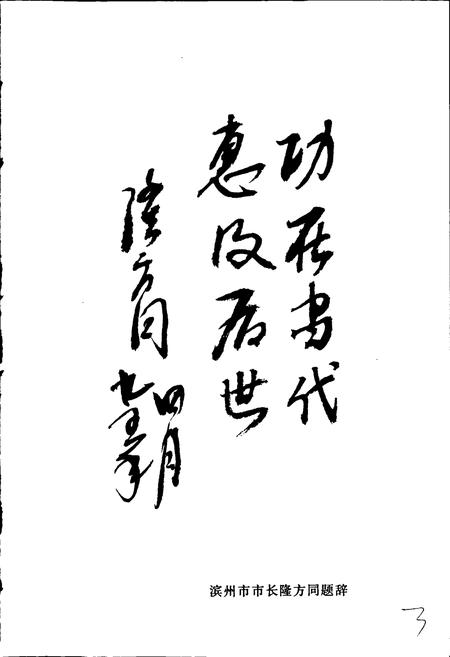 功在当代
惠及后世
隆方同
四月
滨州市市长隆方同题辞
3